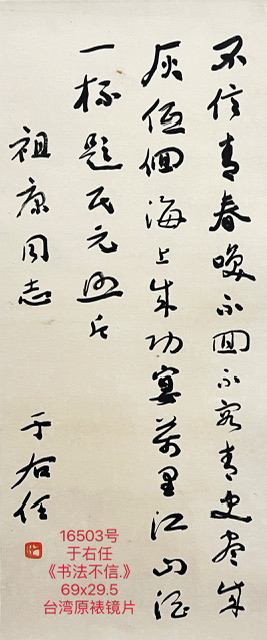 不信青春喚不回不容青史盡成
灰低佪海上成功宴萬里江山酒
一杯題民元照片
祖康同志
于右任
16503号
于右任
《书法不信.》
69x29.5
台湾原裱镜片